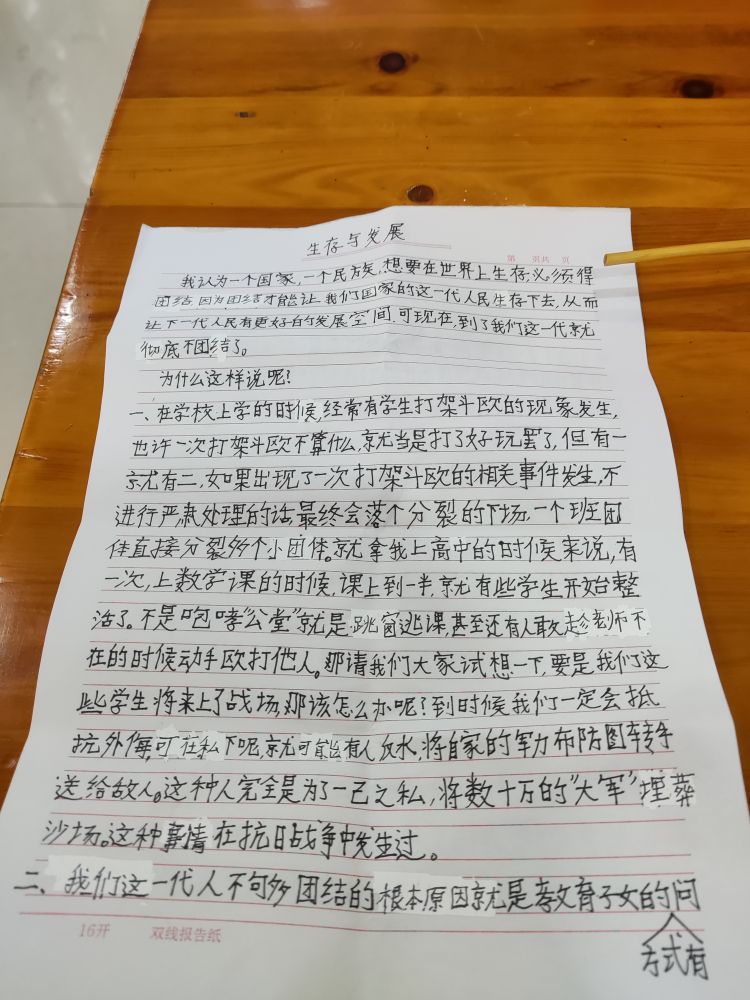 生存与发展
第 页共 页
我认为一个国家,一个民族,想要在世界上生存,必须得
团结,因为团结才能让我们国家的这一代人民生存下去,从而
让下一代人民有更好的发展空间.可现在,到了我们这一代就
彻底不团结了。
为什么这样说呢?
一、在学校上学的时候,经常有学生打架斗欧的现象发生,
也许一次打架斗欧不算什么,就当是打了好玩罢了,但有一
就有二,如果出现了一次打架斗欧的相关事件发生,不
进行严肃处理的话,最终会落个分裂的下场,一个班团
体直接分裂多个小团体。就拿我上高中的时候来说,有
一次,上数学课的时候,课上到一半,就有些学生开始整
活了。不是咆哮“公堂”就是跳窗逃课,甚至还有人敢趁老师不
在的时候动手欧打他人。那请我们大家试想一下,要是我们这
些学生将来上了战场,那该怎么办呢?到时候我们一定会抵
抗外侮,可在私下呢,就可能有人反水,将自家的军力布防图转手
送给敌人。这种人完全是为了一己之私,将数十万的“大军”埋葬
沙场。这种事情在抗日战争中发生过。
二、我们这一代人不够团结的根本原因就是教育子女的问
方式有
16开 双线报告纸